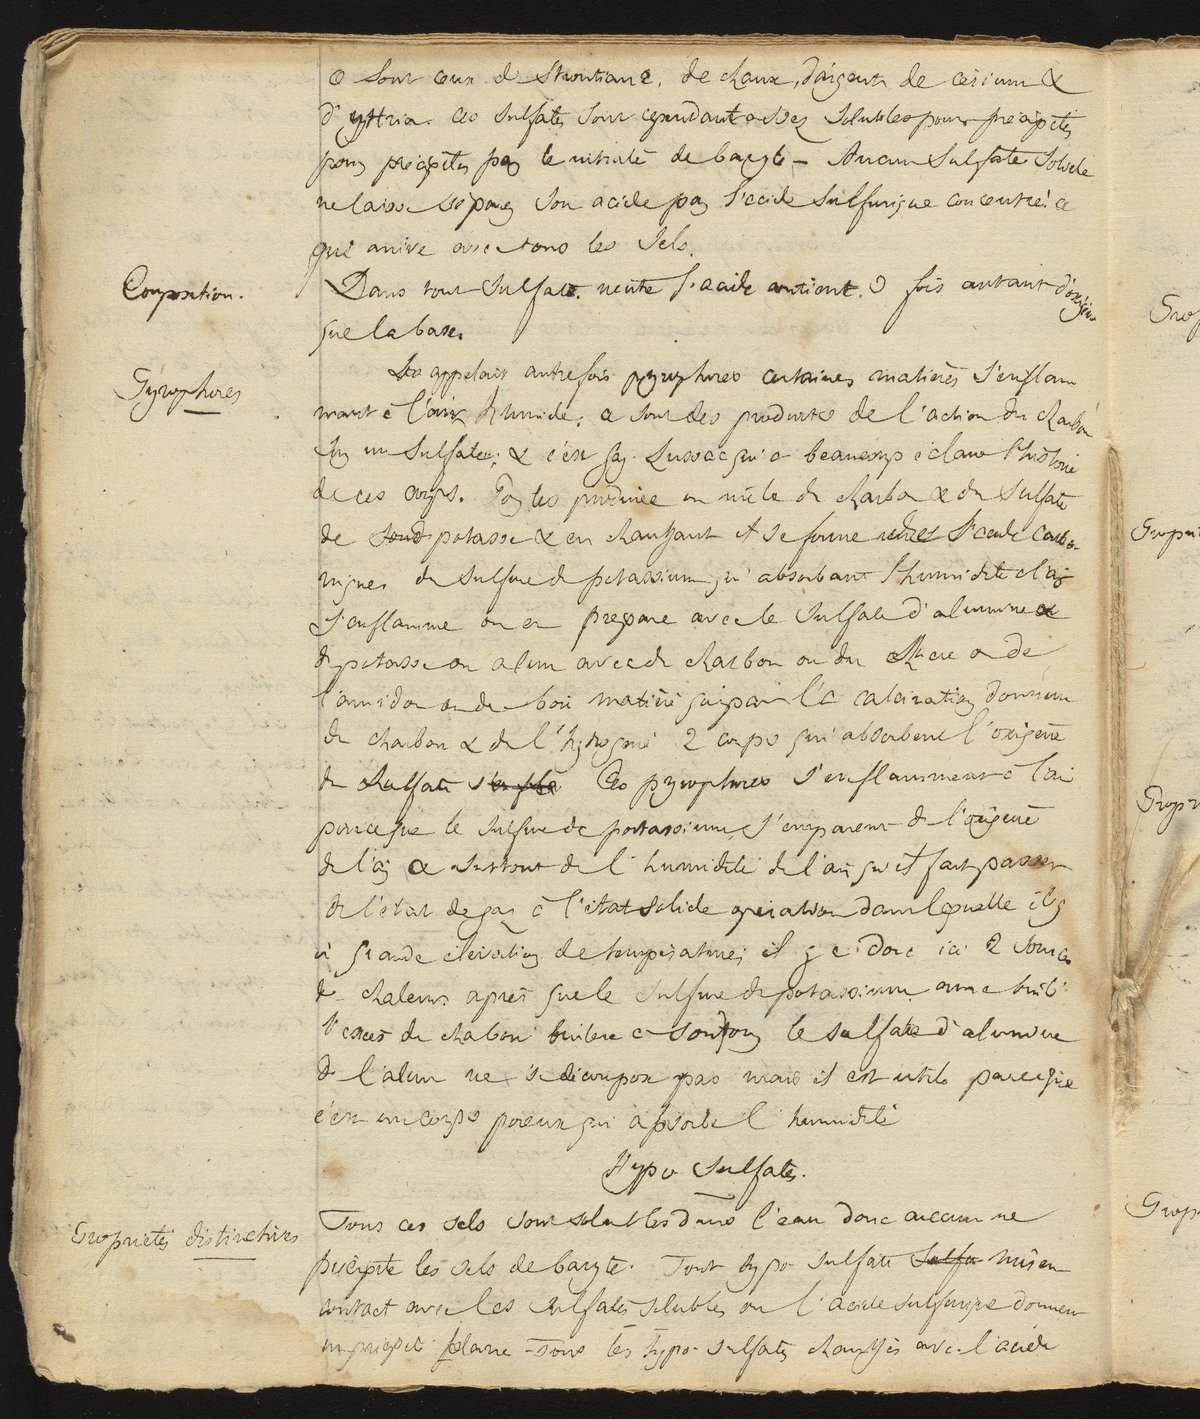 ce sont ceux de Strontiane, de chaux, d'argent, de cerium &
d'yttria. ces sulfates sont cependant assez solubles pour précipités
pour précipités par le nitrate de baryte - Aucun sulfate solide
ne laisse séparer son acide par l'acide sulfurique concentré ce
qui arrive avec tous les sels.
Composition.
Dans tout sulfate neutre l'acide contient 3 fois autant d'oxigène
que la base.
Pyrophores
On appelait autrefois pyrophores certaines matières s'enflam
mant à l'air humide, ce sont des produits de l'action du charbon
sur un sulfate, & c'est Gay Lussac qui a beaucoup éclairé l'histoire
de ces corps. Pour les produire on mêle du charbon & du sulfate
de soude potasse & en chauffant il se forme l'acide carbo
nique du sulfure de potassium qui absorbant l'humidité de l'air
s'enflamme on en prepare avec le sulfate d'alumine &
de potasse ou alun avec du charbon ou du sucre ou de
l'amidon ou du bois matière qui par la calcination donnent
du charbon & de l'hydrogène 2 corps qui absorbent l'oxigène
du sulfate Ces pyrophores s'enflamment à l'air
parce que le sulfure de potassium s'emparent de l'oxigène
de l'air & surtout de l'humidité de l'air qu'il fait passer
de l'état de gaz à l'état solide operation dans laquelle il y
a grande élévation de température, il y a donc ici 2 sources
de chaleur après que le sulfure de potassium
l'excès de charbon brûle a son tour le sulfate d'alumine
de l'alun ne se décompose pas mais il est utile parce que
c'est un corps poreux qui absorbe l'humidité
Hypo sulfates.
Proprietés distinctives
Tous ces sels sont solubles dans l'eau donc aucun ne
précipite les sels de baryte. Tout hypo sulfate sulfa mis en
contact avec les sulfates solubles ou l'acide sulfurique donnent
un précipité blanc - tous les hypo-sulfates chauffés avec l'acide